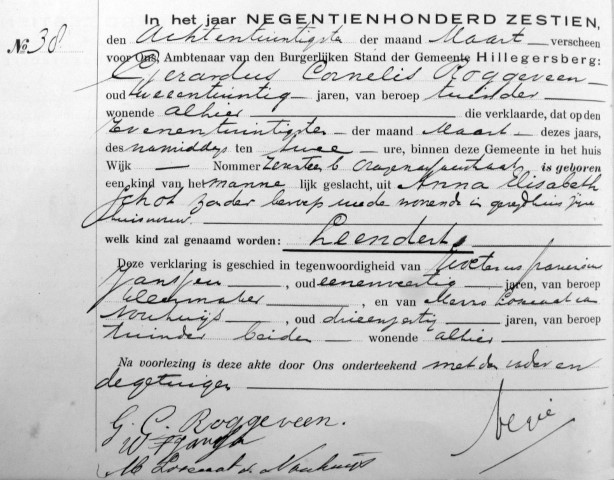 No. 38
In het jaar NEGENTIENHONDERD ZESTIEN,
den Achtentwintigste der maand Maart verscheen
voor Ons, Ambtenaar van den Burgerlijken Stand der Gemeente Hillegersberg:
Gerardus Cornelis Roggeveen
oud tweeentwintig jaren, van beroep tuinder
wonende alhier die verklaarde, dat op den
Zevenentwintigsten der maand Maart dezes jaars,
des namiddags ten twee ure, binnen deze Gemeente in het huis
Wijk Nommer is geboren
een kind van het manne lijk geslacht, uit Anna Elisabeth
Schot zonder beroep mede wonende in
huisvrouw
welk kind zal genaamd worden: Leendert
Deze verklaring is geschied in tegenwoordigheid van
Janssen, oud eenenveertig jaren, van beroep
kleermaker, en van
Nouhuijs, oud drieenveertig jaren, van beroep
tuinder beiden wonende alhier
Na voorlezing is deze akte door Ons onderteekend met den vader en
de getuigen
G. C. Roggeveen.